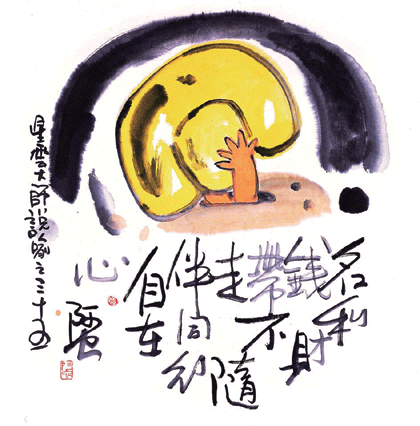 名利
錢財
帶不
走隨
伴同
自在
心
星雲大師說之三十五